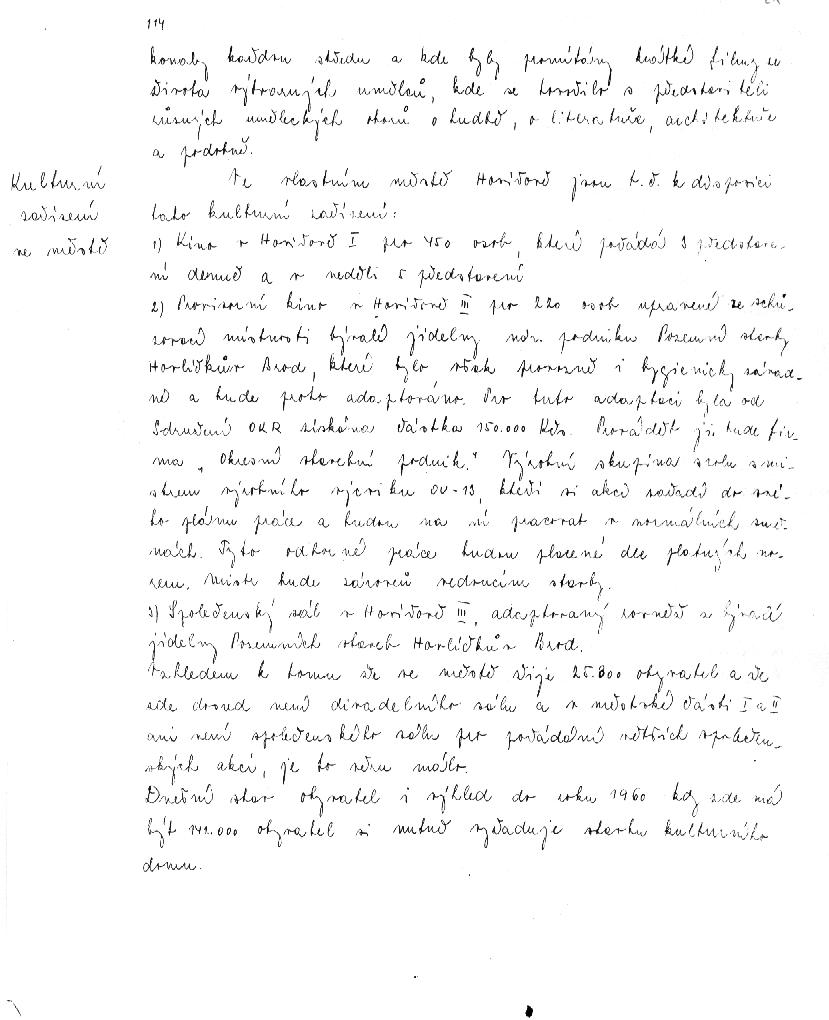 114
konaby každou středu a kde byly promítány krátké filmy ze
života výtvarných umělců, kde se hovořilo s představiteli
různých uměleckých oborů o hudbě, o literatuře, architektuře
a podobně.
Kulturní
zařízení
ve městě
Ve vlastním městě Havířově jsou t.č. k disposici
tato kulturní zařízení:
1) Kino v Havířově I pro 450 osob, které pořádá 3 představe-
ní denně a v neděli 5 představení
2) Provisorní kino v Havířově III pro 220 osob upravené ze schů-
zovací místnosti bývalé jídelny nár. podniku Pozemní stavby
Havlíčkův Brod, které bylo však provozně i hygienicky závad-
né a bude proto adaptováno. Pro tuto adaptaci byla od
Sdružení OKR získána částka 150.000 Kčs. Provádět ji bude fir-
ma „Okresní stavební podnik." Výrobní skupina spolu s mi-
strem výrobního výcviku OU-13, kteří si akci zařadí do své-
ho plánu práce a budou na ní pracovat v normálních smě-
nách. Tyto odborné práce budou placené dle platných no-
rem. Mistr bude zároveň vedoucím stavby.
3) Společenský sál v Havířově III, adaptovaný rovněž z bývalé
jídelny Pozemních staveb Havlíčkův Brod.
Vzhledem k tomu že ve městě žije 25.800 obyvatel a že
zde dosud není divadelního sálu a v městské části I a II
ani není společenského sálu pro pořádání větších společen-
ských akcí, je to velmi málo.
Dnešní stav obyvatel i výhled do roku 1960 kdy zde má
být 141.000 obyvatel si nutně vyžaduje stavbu kulturního
domu.